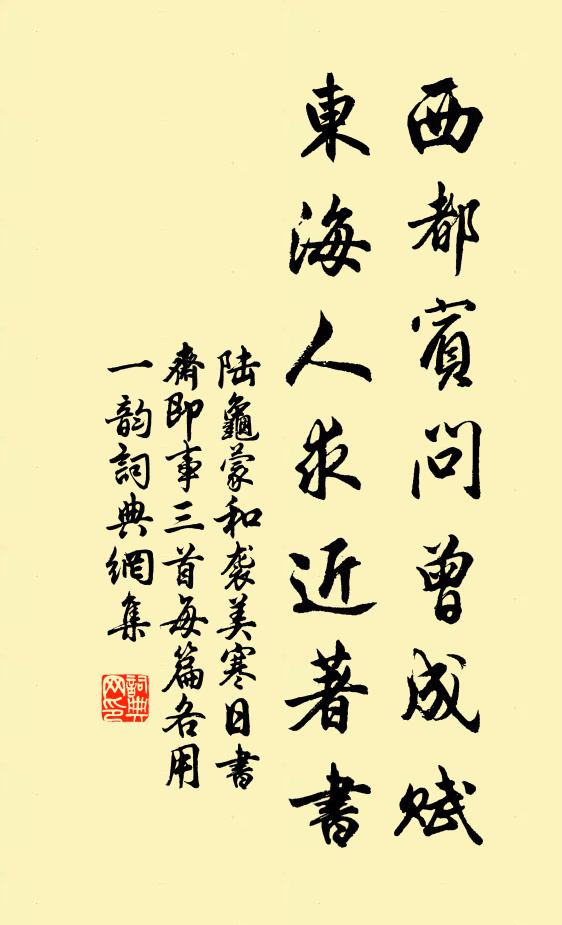 西都賓問曾成賦
東海人求近著書
陆龜蒙和袭美寒日書
齋即事三首每篇各用
一韵詞典網集
詞典
网印